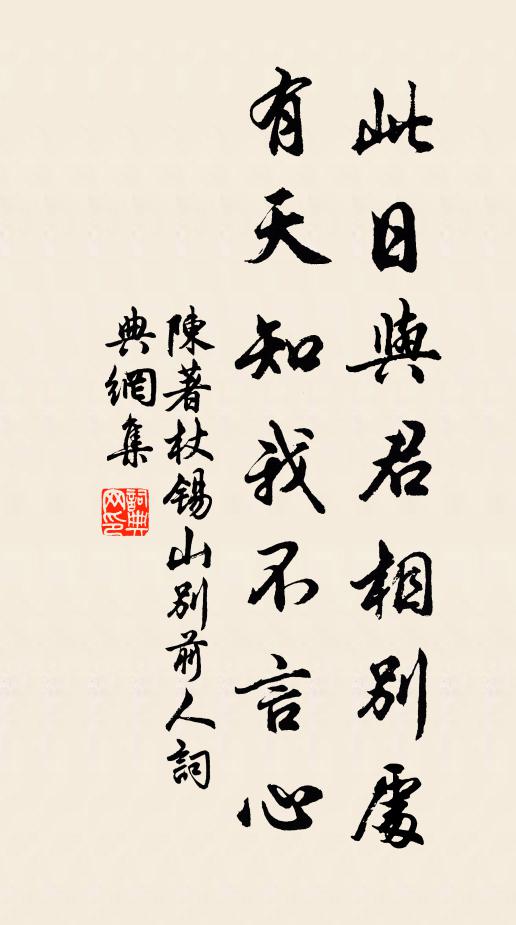 此日與君相別處
有天知我不言心
陳著杖錫山別前人詞
典網集
詞典網印